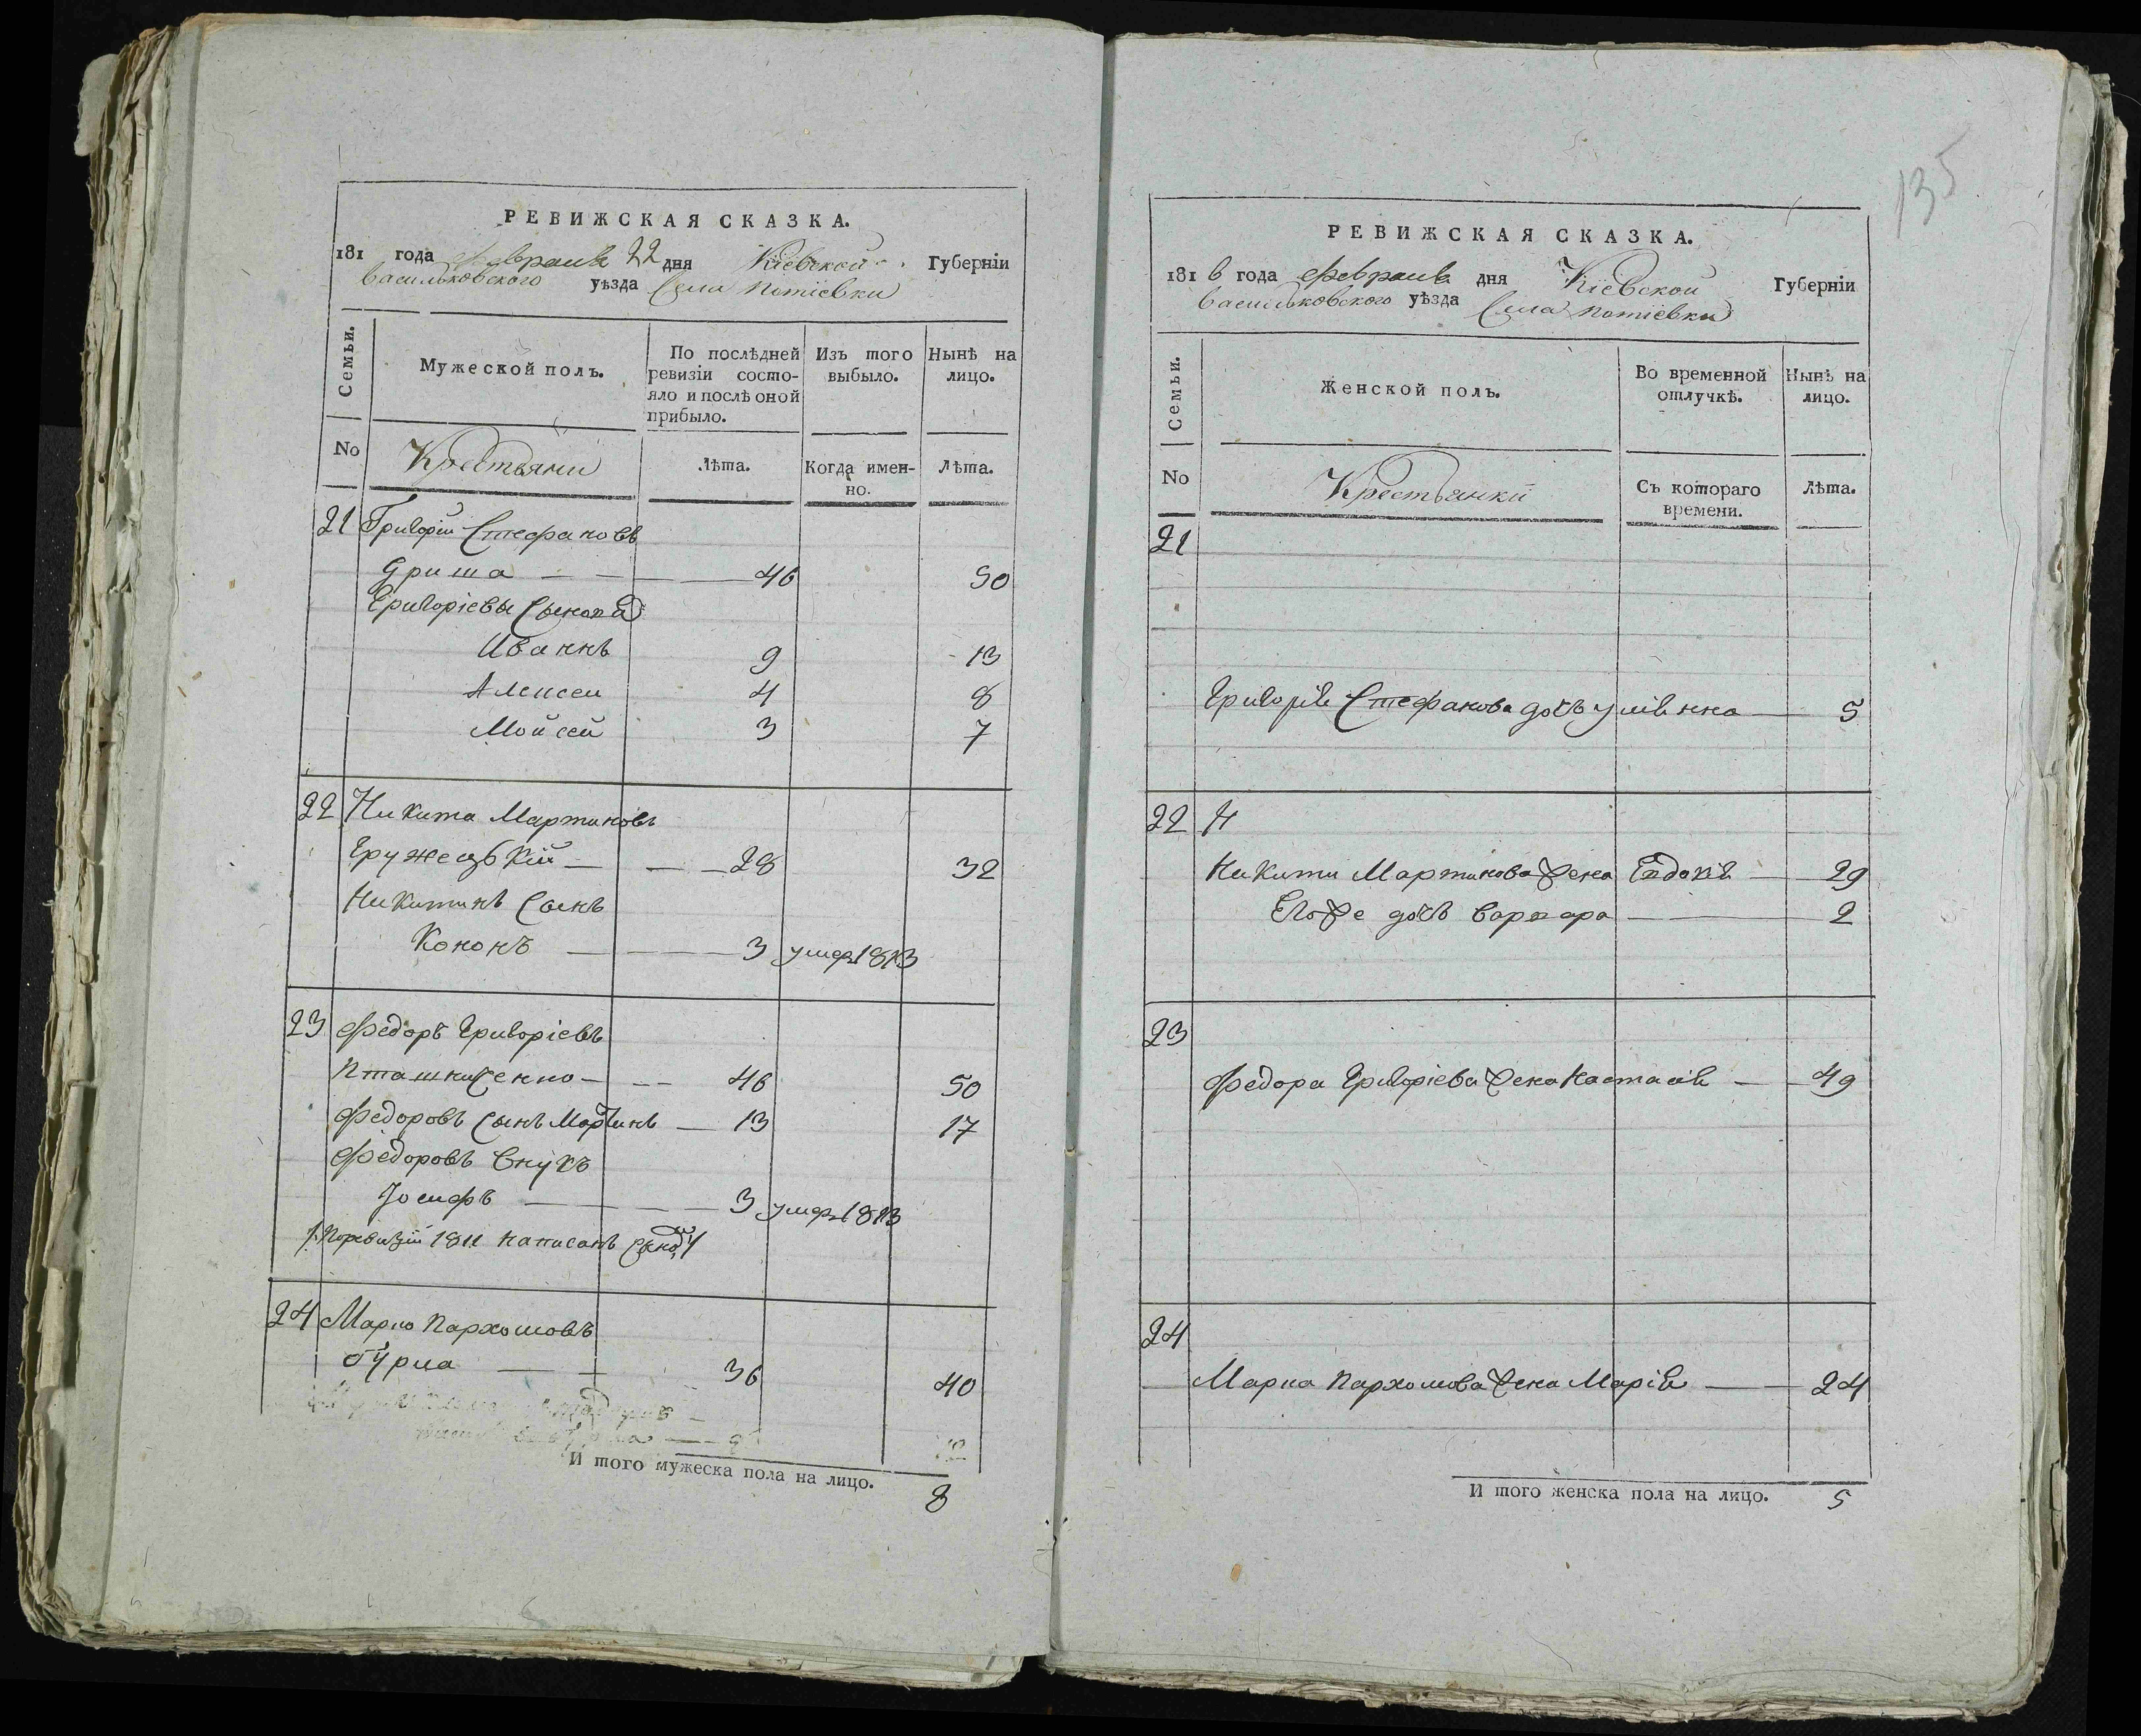 РЕВИЖСКАЯ СКАЗКА.
181 года февраля 22 дня Кіевской Губерніи
васильковского уѣзда Села Потіевки
Семьи.
Мужеской полъ.
По послѣдней ревизіи состо-
яло и послѣ оной прибыло.
Изъ того выбыло.
Нынѣ на лицо.
No
Крестьяни
Лѣта.
Когда имен-
но.
Лѣта.
21 Григорій Стефановъ
Гриша 46 50
Григоріевы Сынова
Иваннъ 9 13
Алексеи 4 8
Мойсей 3 7
22 Никита Мартиновъ
Гружецъкій 28 32
Никитинъ Сынъ
Кононъ 3 умер 1813
23 Федоръ Григоріевъ
Пташниченко 46 50
Федоровъ Сынъ Мартинъ 13 17
Федоровъ Внукъ
Іосифъ 3 умер 1813
По ревизіи 1811 написанъ
24 Марко Пархомовъ
бурла 36 40
И того мужеска пола на лицо.
8
135
РЕВИЖСКАЯ СКАЗКА.
1816 года февраля дня Кіевской Губерніи
васильковского уѣзда Села Потіевки
Семьи.
Женской полъ.
Во временной отлучкѣ.
Нынѣ на лицо.
No
Крестьянки
Съ котораго времени.
Лѣта.
21
Григорія Стефанова дочъ улiянна 5
22 Н
Никити Мартинова жена Евдокія 29
Егоже дочъ варвара 2
23
Федора Григоріева жена Настасія 49
24
Марка Пархомова жена Марія 24
И того женска пола на лицо. 5